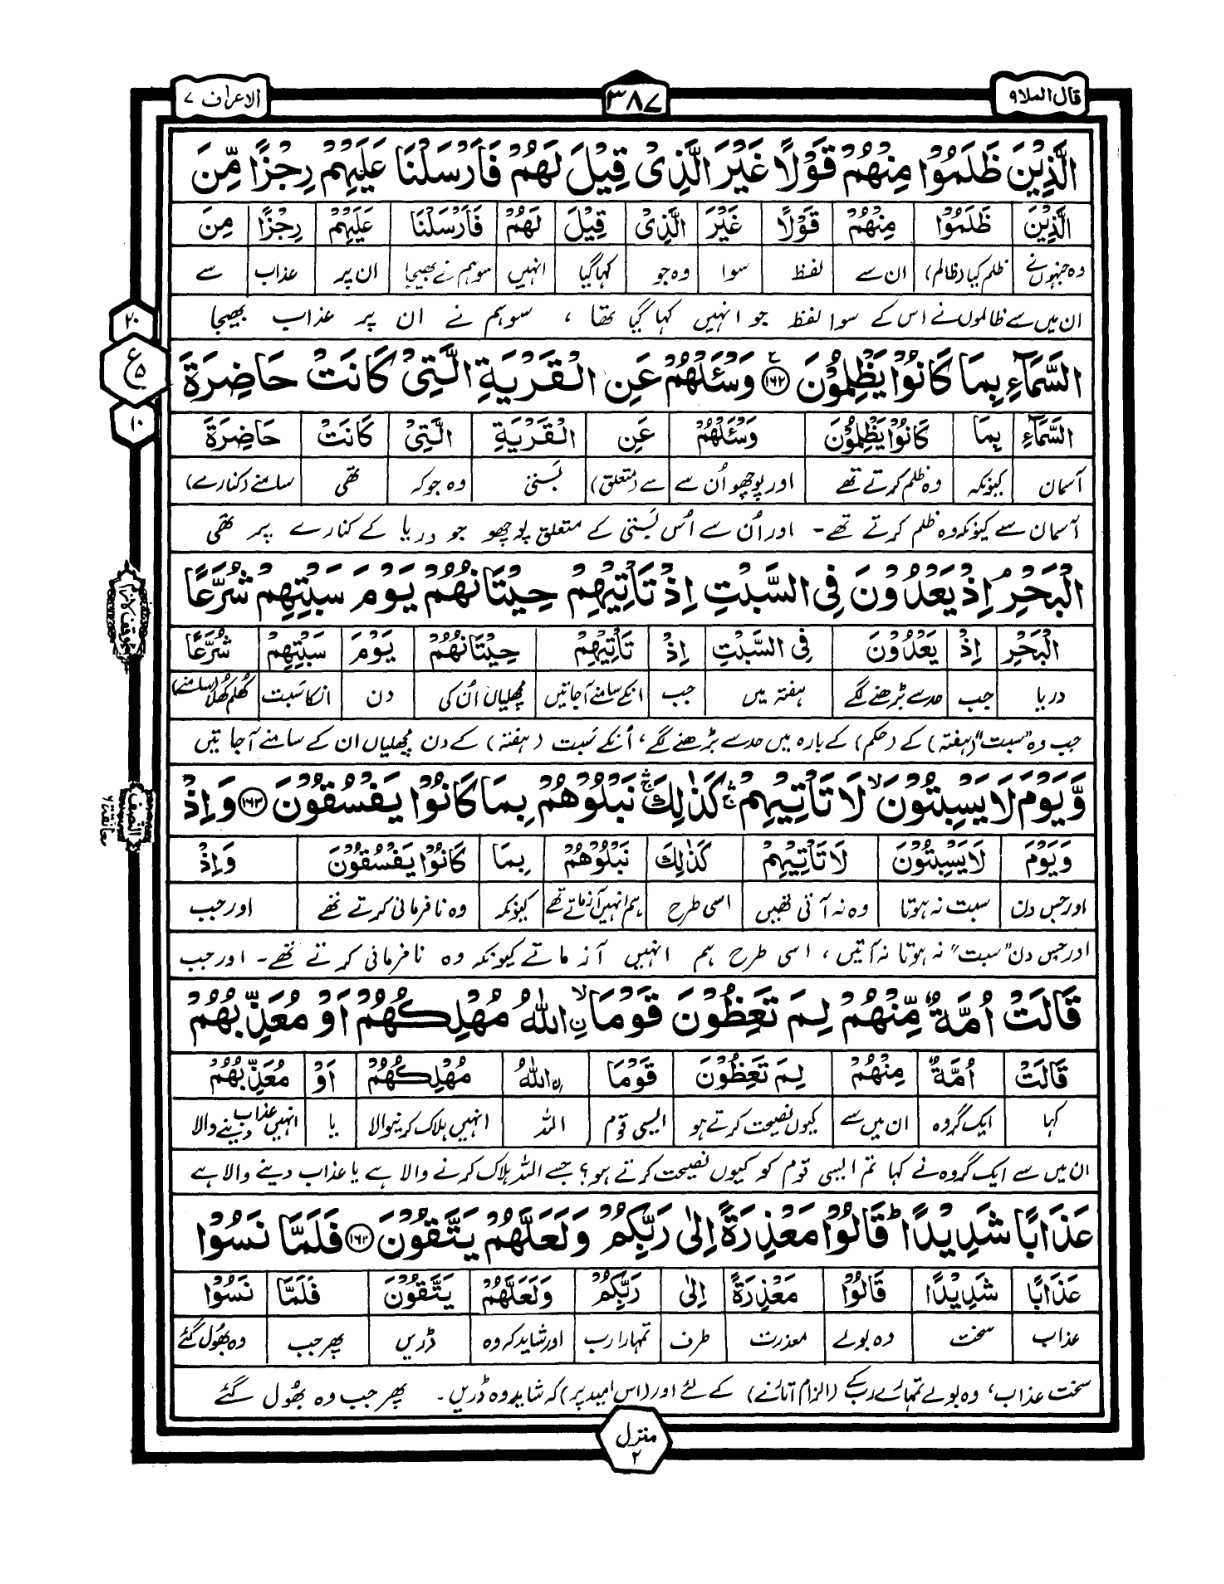 قال الملا ٩
٣٨٧
الاعراف ٧
الَّذِيْنَ ظَلَمُوْا مِنْهُمْ قَوْلًا غَيْرَ الَّذِيْ قِيْلَ لَهُمْ فَاَرْسَلْنَا عَلَيْهِمْ رِجْزًا مِّنَ
الَّذِيْنَ ظَلَمُوْا مِنْهُمْ قَوْلًا غَيْرَ الَّذِيْ قِيْلَ لَهُمْ فَاَرْسَلْنَا عَلَيْهِمْ رِجْزًا مِنَ
وہ جنہوں نے ظلم کیا (ظالم) ان سے لفظ سوا وہ جو کہا گیا انہیں سو ہم نے بھیجا ان پر عذاب سے
ان میں سے ظالموں نے اس کے سوا لفظ جو انہیں کہا گیا تھا ، سو ہم نے ان پر عذاب بھیجا
السَّمَآءِ بِمَا كَانُوْا يَظْلِمُوْنَ ۱۶۲ وَسْئَلْهُمْ عَنِ الْقَرْيَةِ الَّتِيْ كَانَتْ حَاضِرَةَ
السَّمَآءِ بِمَا كَانُوْا يَظْلِمُوْنَ وَسْئَلْهُمْ عَنِ الْقَرْيَةِ الَّتِيْ كَانَتْ حَاضِرَةَ
آسمان کیونکہ وہ ظلم کرتے تھے اور پوچھو اُن سے سے (متعلق) بستی وہ جو کہ تھی سامنے (کنارے)
آسمان سے کیونکہ وہ ظلم کرتے تھے۔ اور اُن سے اُس بستی کے متعلق پوچھو جو دریا کے کنارے پر تھی
الْبَحْرِ اِذْ يَعْدُوْنَ فِي السَّبْتِ اِذْ تَاْتِيْهِمْ حِيْتَانُهُمْ يَوْمَ سَبْتِهِمْ شُرَّعًا
الْبَحْرِ اِذْ يَعْدُوْنَ فِي السَّبْتِ اِذْ تَاْتِيْهِمْ حِيْتَانُهُمْ يَوْمَ سَبْتِهِمْ شُرَّعًا
دریا جب حد سے بڑھنے لگے ہفتہ میں جب انکے سامنے آجاتیں مچھلیاں اُن کی دن انکا سبت کھلم کھلا (سامنے)
جب وہ "سبت" (ہفتہ) کے (حکم) کے بارہ میں حد سے بڑھنے لگے، اُنکے سبت (ہفتہ) کے دن مچھلیاں ان کے سامنے آجاتیں
وَّيَوْمَ لَا يَسْبِتُوْنَ لَا تَاْتِيْهِمْ كَذٰلِكَ نَبْلُوْهُمْ بِمَا كَانُوْا يَفْسُقُوْنَ ۱۶۳ وَاِذْ
وَيَوْمَ لَا يَسْبِتُوْنَ لَا تَاْتِيْهِمْ كَذٰلِكَ نَبْلُوْهُمْ بِمَا كَانُوْا يَفْسُقُوْنَ وَاِذْ
اور جس دن سبت نہ ہوتا وہ نہ آتی تھیں اسی طرح ہم انہیں آزماتے تھے کیونکہ وہ نافرمانی کرتے تھے اور جب
اور جس دن "سبت" نہ ہوتا نہ آتیں، اسی طرح ہم انہیں آزماتے کیونکہ وہ نافرمانی کرتے تھے۔ اور جب
قَالَتْ اُمَّةٌ مِّنْهُمْ لِمَ تَعِظُوْنَ قَوْمَا ۨاللّٰهُ مُهْلِكُهُمْ اَوْ مُعَذِّبُهُمْ
قَالَتْ اُمَّةٌ مِنْهُمْ لِمَ تَعِظُوْنَ قَوْمَا ۨاللّٰهُ مُهْلِكُهُمْ اَوْ مُعَذِّبُهُمْ
کہا ایک گروہ ان میں سے کیوں نصیحت کرتے ہو ایسی قوم اللہ انہیں ہلاک کرنیوالا یا انہیں عذاب دینے والا
ان میں سے ایک گروہ نے کہا تم ایسی قوم کو کیوں نصیحت کرتے ہو؟ جسے اللہ ہلاک کرنے والا ہے یا عذاب دینے والا ہے
عَذَابًا شَدِيْدًا قَالُوْا مَعْذِرَةً اِلٰى رَبِّكُمْ وَلَعَلَّهُمْ يَتَّقُوْنَ ۱۶۴ فَلَمَّا نَسُوْا
عَذَابًا شَدِيْدًا قَالُوْا مَعْذِرَةً اِلٰى رَبِّكُمْ وَلَعَلَّهُمْ يَتَّقُوْنَ فَلَمَّا نَسُوْا
عذاب سخت وہ بولے معذرت طرف تمہارا رب اور شاید کہ وہ ڈریں پھر جب وہ بھول گئے
سخت عذاب، وہ بولے تمہارے رب کے (الزام اتارنے) کے لئے اور (اس امید پر) کہ شاید وہ ڈریں۔ پھر جب وہ بھول گئے
۲۰
ع
۵
۱۰
النصف
معانقة ۶
منزل
۲